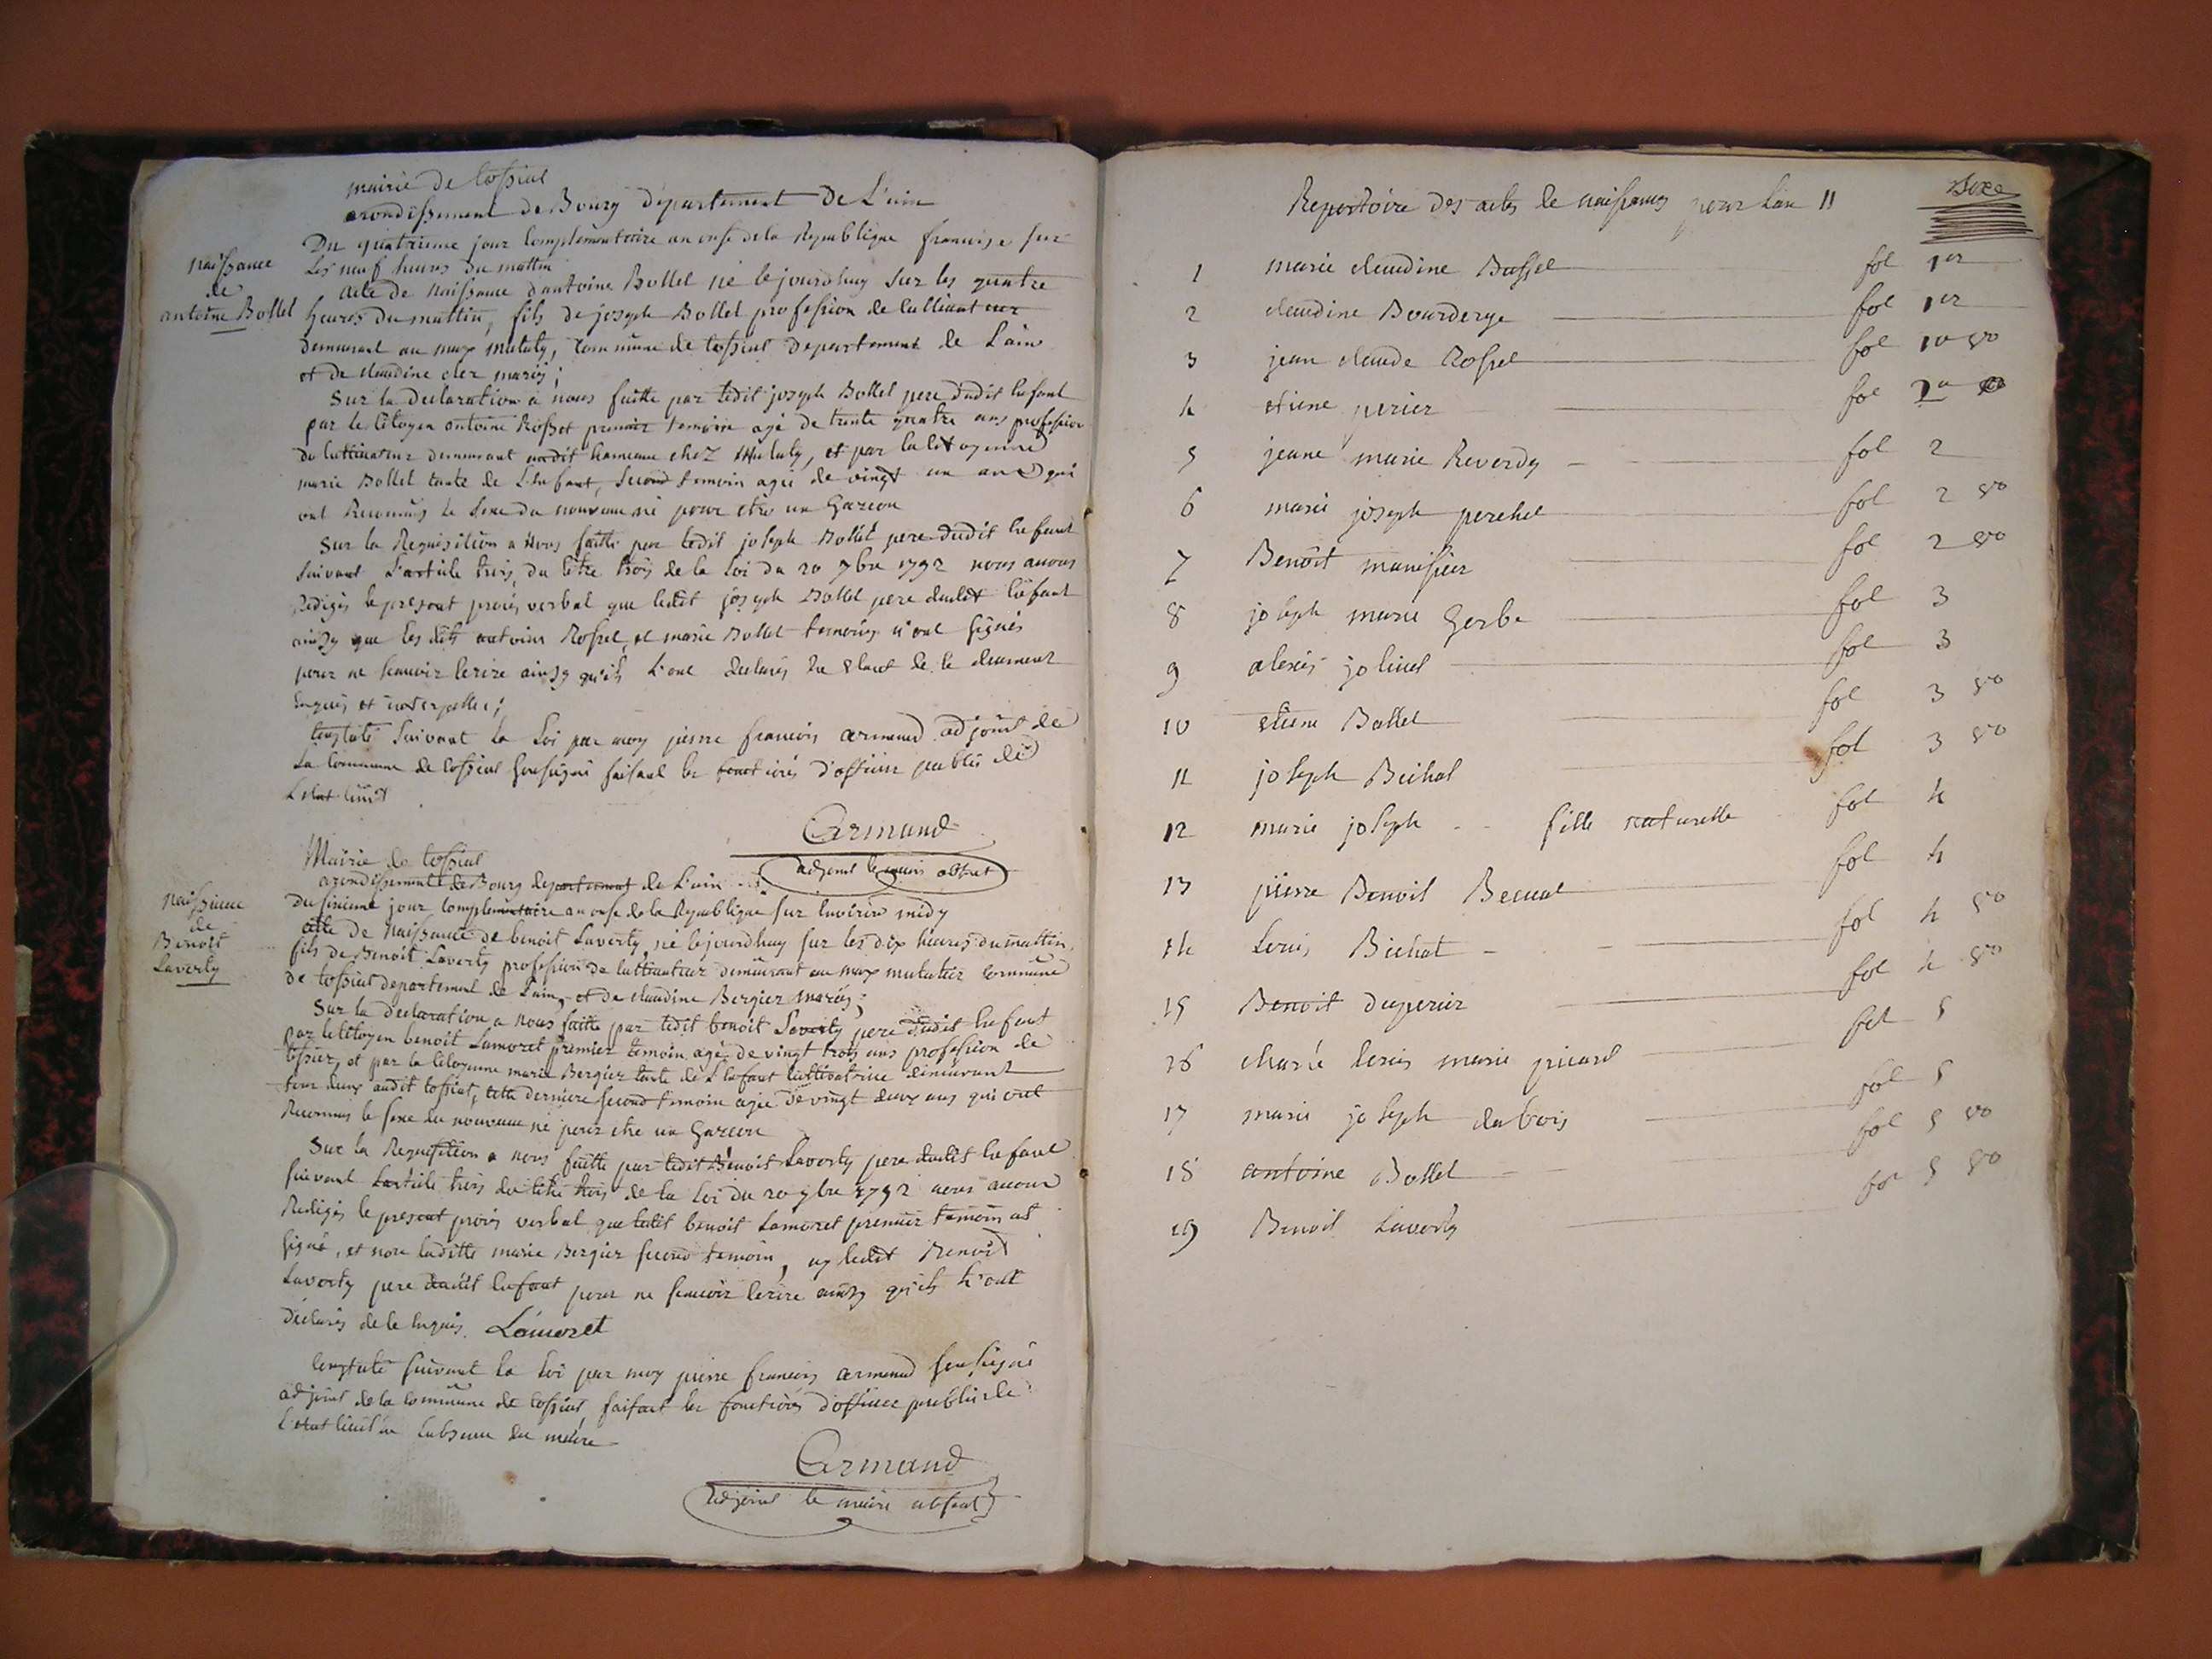 mairie de tossiat
arondissement de Bourg departement de L'ain
Du quatrieme jour Complementaire an onse dela Republique francoise sur
Les neuf heures du mattin
naissance
de
antoine Bollet
acte de Naissance d'antoine Bollet né cejourdhuy sur les quatre
heures du mattin, fils de joseph Bollet profession de Cultivateur
demeurant au max mutaty, Commune de tossiat departement de L'ain
et de claudine clez mariés ;
Sur la declaration a nous faitte par ledit joseph Bollet pere dudit Enfant
par le Citoyen antoine Rosset premier temoin agé de trente quatre ans profession
de Cultivateur demeurant audit hameau chez Mutaty, et par la Citoyenne
marie Bollet tante de L'Enfant, second temoin agée de vingt un ans qui
ont Reconnus le sexe du nouveau né pour etre un Garcon
Sur la Requisition a Nous faitte par ledit joseph Bollet pere dudit Enfant
suivant L'article trois du titre trois de la Loi du 20 7bre 1792 nous avons
Redigés le present proces verbal que ledit joseph Bollet pere dudit Enfant
ainsy que les dits antoine Rosset et marie Bollet temoins n'ont signés
pour ne scavoir Ecrire ainsy qu'ils L'ont declarés de ce deument
Enquis et interpellés ;
Constaté suivant La Loi par moy pierre francois armand adjoint de
La Commune de tossiat soussigné faisant les fonctions d'officier public de
L'etat Civil
Armand
adjoint le maire absent
Mairie de tossiat
arondissement de Bourg departement de L'ain
naissance
de
Benoit
Laverty
du sixieme jour Complementaire an onse de la Republique sur Environ midy
acte de Naissance de benoit Laverty, né cejourdhuy sur les dix heures du mattin,
fils de Benoit Laverty profession de Cultivateur demeurant au max mutatier Commune
de tossiat departement de L'ain, et de claudine Bergier mariés ;
Sur la declaration a nous faitte par ledit benoit Laverty pere dudit Enfant
par le Citoyen benoit Lamoret premier temoin agé de vingt trois ans profession de
et par la Citoyenne marie Bergier tante de L'Enfant Cultivatrice demeurant
tous deux audit tossiat, cette derniere second temoin agée de vingt deux ans qui ont
Reconnus le sexe du nouveau né pour etre un Garcon
Sur la Requisition a nous faitte par ledit Benoit Laverty pere dudit Enfant
suivant L'article trois du titre trois de la Loi du 20 7bre 1792 nous avons
Redigés le present procés verbal que ledit benoit Lamoret premier temoin at
signé, et non laditte marie Bergier second temoin, ny ledit Benoit
Laverty pere dudit Enfant pour ne scavoir Ecrire ainsy qu'ils L'ont
déclarés de ce Enquis. Lamoret
Constaté suivant la Loi par moy pierre francois armand soussigné
adjoint de la Commune de tossiat faisant les fonctions d'officier public de
L'etat Civil En L'absence du maire
Armand
adjoint le maire absent
Repertoire des actes de naissances pour L'an 11
1 marie claudine Bussel fol 1er
2 claudine Bourderye fol 1er
3 jean claude Rosset fol 1er vo
4 etiene perier fol 2
5 jeane marie Reverdy fol 2
6 marie joseph perchet fol 2 vo
7 Benoit manissier fol 2 vo
8 joseph marie Gerbe fol 3
9 alexis jolivet fol 3
10 etiene Bollet fol 3 vo
11 joseph Bichat fol 3 vo
12 marie joseph - - fille naturelle fol 4
13 pierre Benoit Becuat fol 4
14 Louis Bichat fol 4 vo
15 Benoit duperier fol 4 vo
16 marie picard fol 5
17 marie joseph dubois fol 5
18 antoine Bollet fol 5 vo
19 Benoit Laverty fol 5 vo